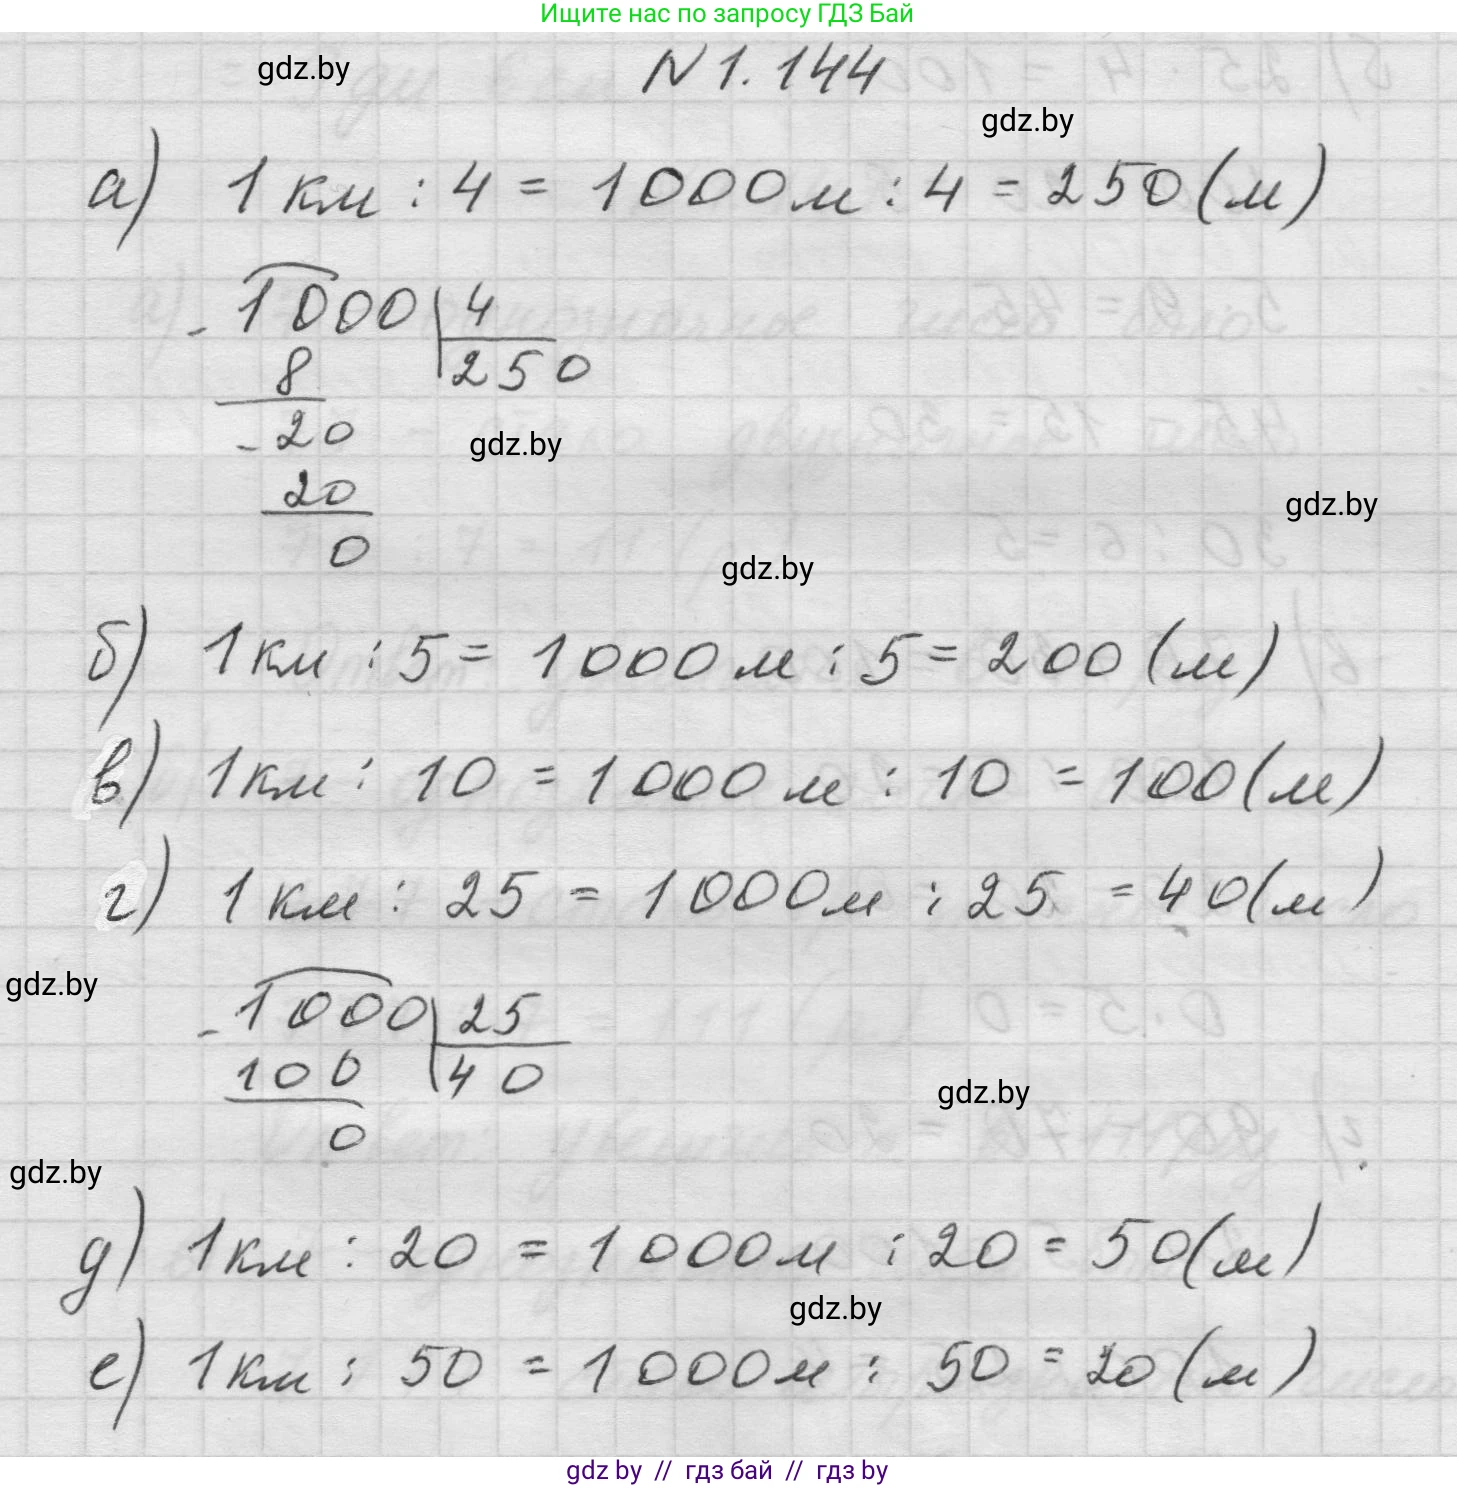 Ищите нас по запросу ГДЗ Бай
gdz.by
N 1.144
gdz.by
а) 1 км : 4 = 1000 м : 4 = 250 (м)
- 1000 | 4
8 | 250
- 20
gdz.by
20
gdz.by
0
gdz.by
б) 1 км : 5 = 1000 м : 5 = 200 (м)
в) 1 км : 10 = 1000 м : 10 = 100 (м)
г) 1 км : 25 = 1000 м : 25 = 40 (м)
gdz.by
- 1000 | 25
100 | 40
gdz.by
0
gdz.by
д) 1 км : 20 = 1000 м : 20 = 50 (м)
gdz.by
е) 1 км : 50 = 1000 м : 50 = 20 (м)
gdz by // гдз бай // гдз by